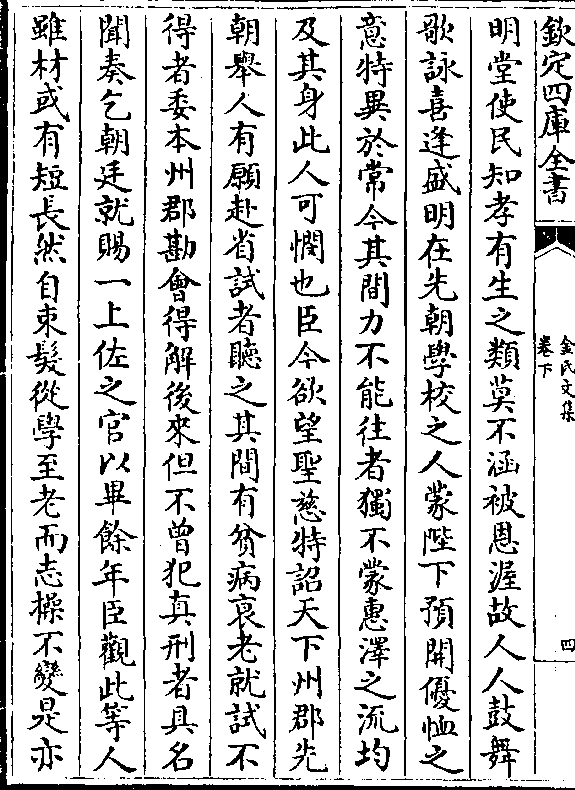 欽定四庫全書
金氏文集
卷下
四
明堂使民知孝有生之類莫不涵被恩渥故人人鼓舞
歌詠喜逢盛明在先朝學校之人蒙陛下預開優恤之
意特異於常今其間力不能往者獨不蒙惠澤之流均
及其身此人可憫也臣今欲望聖慈特詔天下州郡先
朝舉人有願赴省試者聽之其間有貧病衰老就試不
得者委本州郡勘會得解後來但不曾犯真刑者具名
聞奏乞朝廷就賜一上佐之官以畢餘年臣觀此等人
雖材或有短長然自束髮從學至老而志操不變是亦